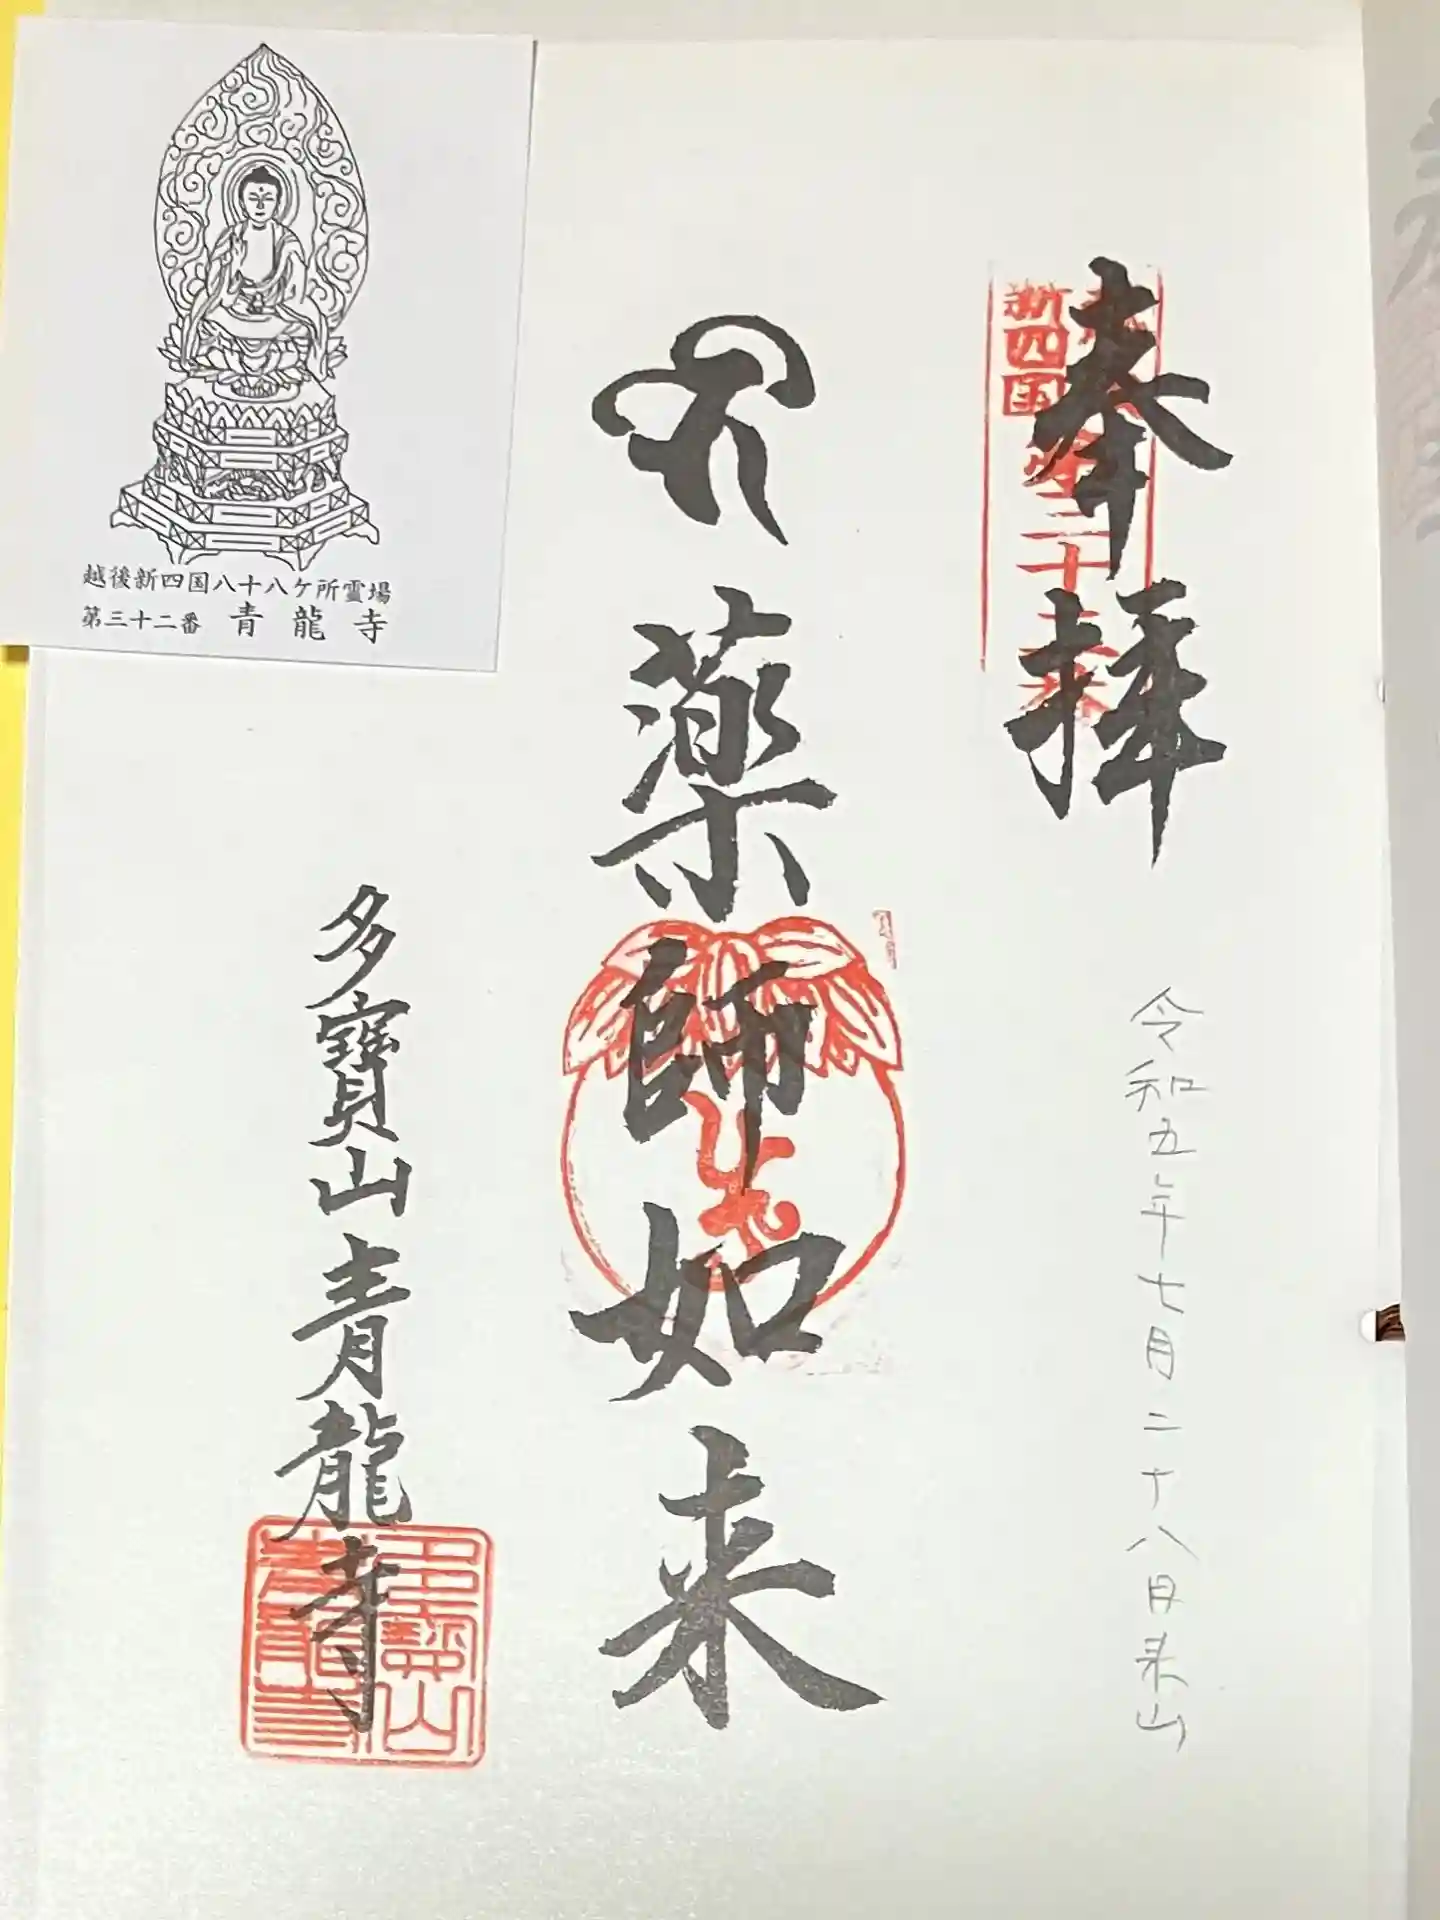 奉拝
越後
新四国
第三十二番
令和五年七月二十八日来山
薬師如来
多寳山青龍寺
多寳山
青龍寺
越後新四国八十八ケ所霊場
第三十二番 青龍寺